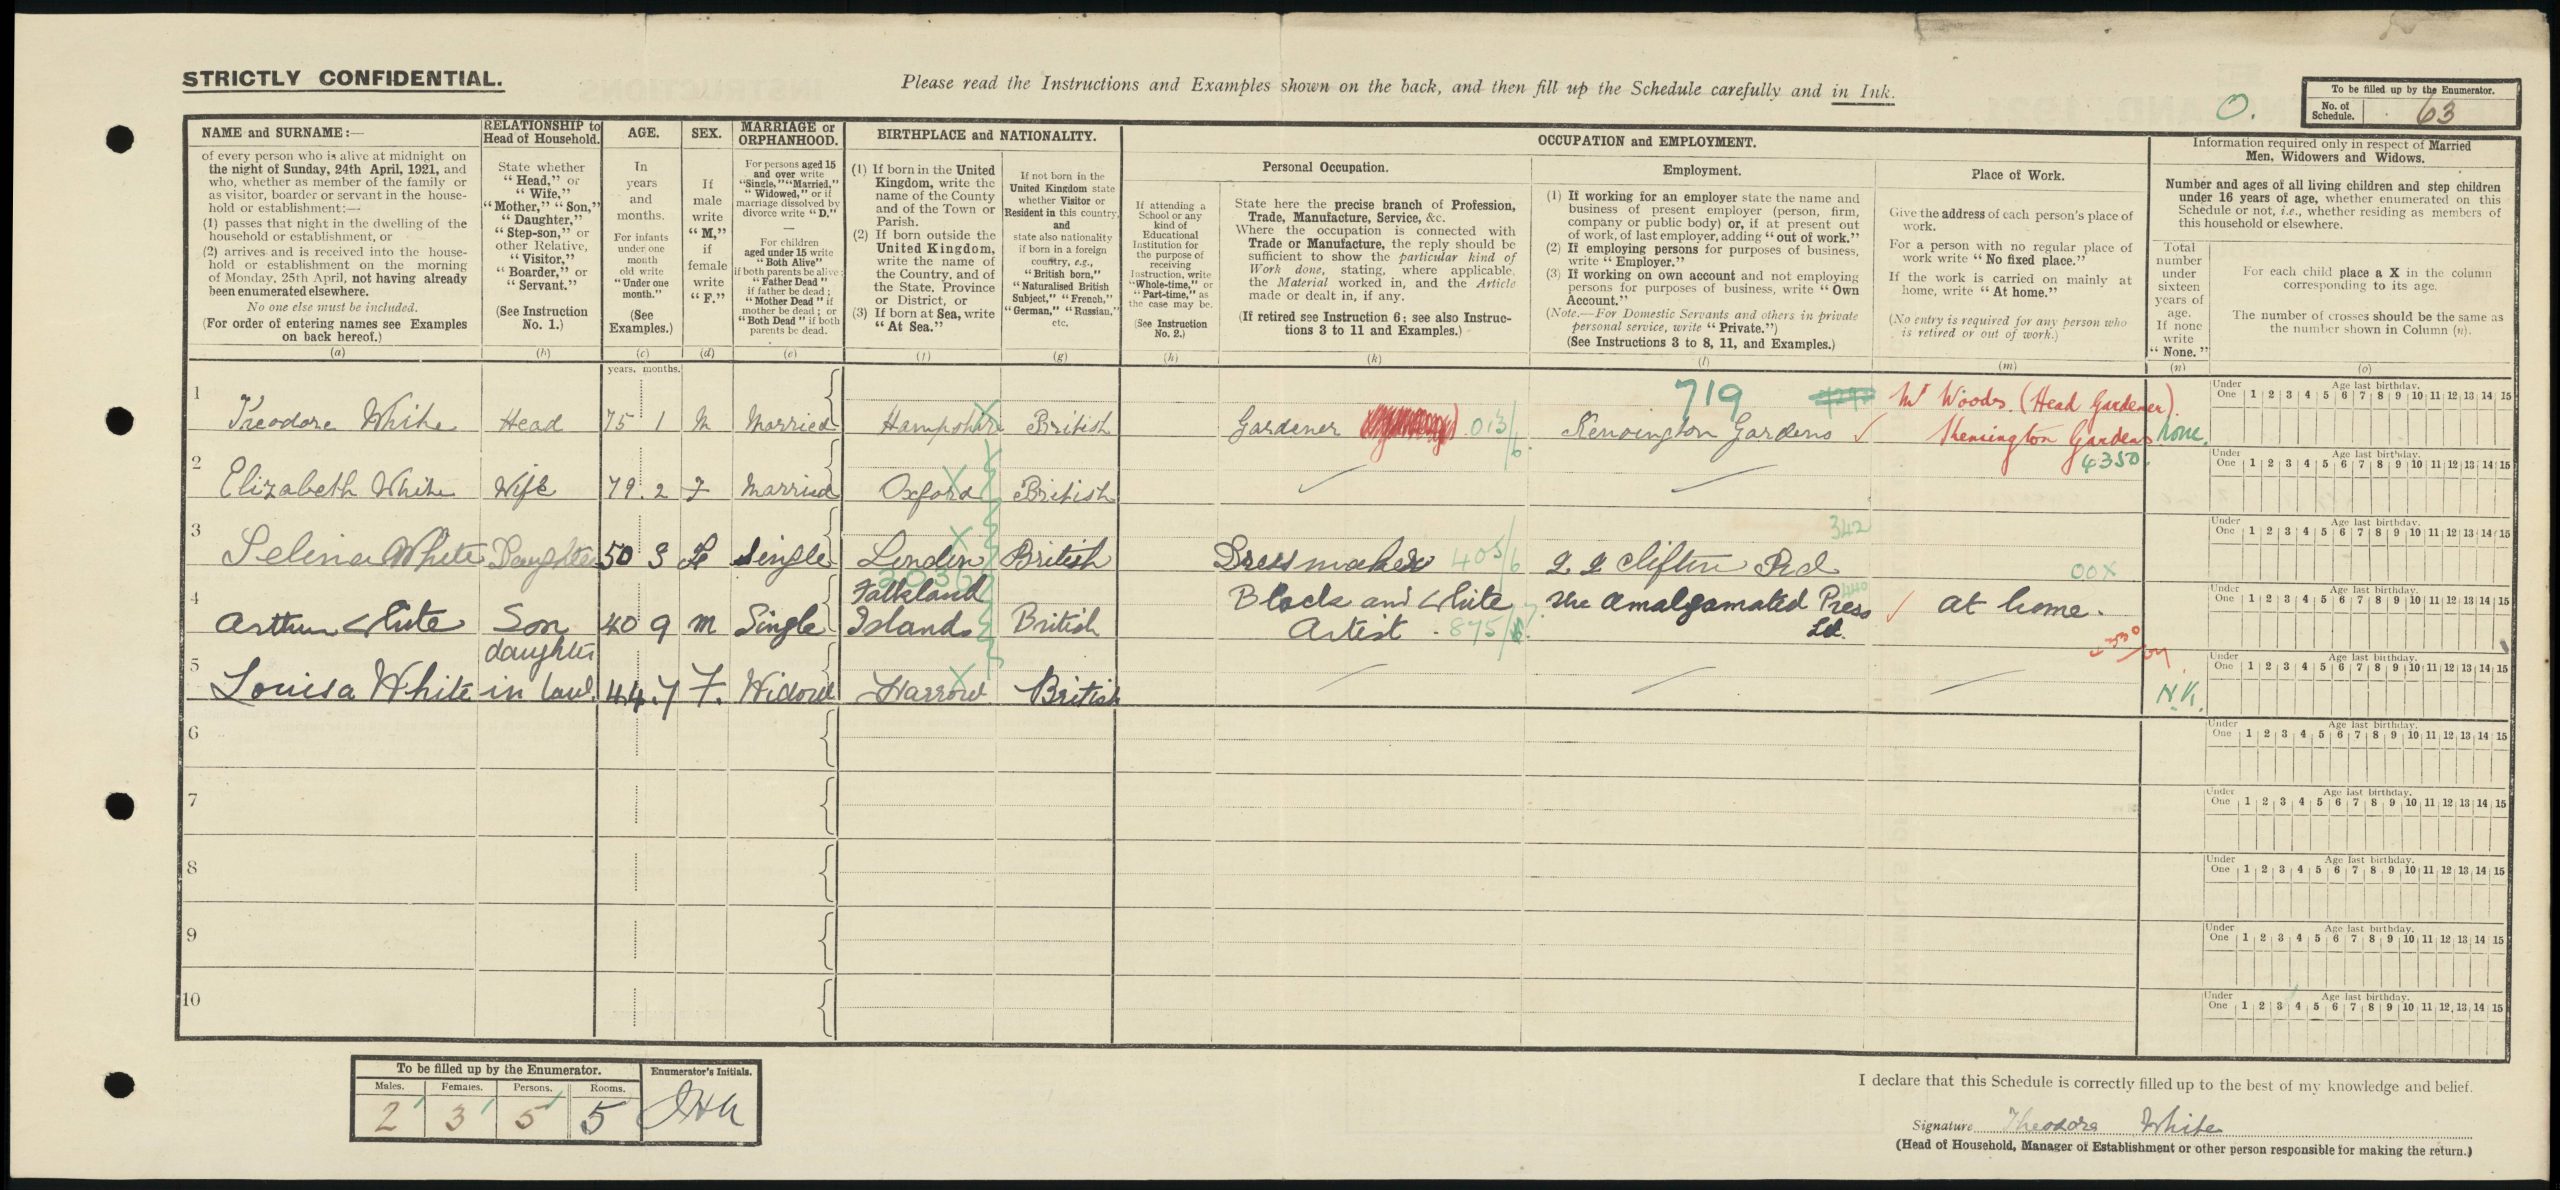 STRICTLY CONFIDENTIAL.
Please read the Instructions and Examples shown on the back, and then fill up the Schedule carefully and in Ink.
O.
To be filled up by the Enumerator.
No. of Schedule. 63
NAME and SURNAME:—
of every person who is alive at midnight on
the night of Sunday, 24th April, 1921, and
who, whether as member of the family or
as visitor, boarder or servant in the house-
hold or establishment:—
(1) passes that night in the dwelling of the
household or establishment, or
(2) arrives and is received into the house-
hold or establishment on the morning
of Monday, 25th April, not having already
been enumerated elsewhere.
No one else must be included.
(For order of entering names see Examples
on back hereof.)
(a)
RELATIONSHIP to
Head of Household.
State whether
"Head," or
"Wife,"
"Mother," "Son,"
"Daughter,"
"Step-son," or
other Relative,
"Visitor,"
"Boarder," or
"Servant."
(See Instruction
No. 1.)
(b)
AGE.
In
years
and
months.
For infants
under one
month
old write
"Under one
month."
(See
Examples.)
(c)
years. months.
SEX.
If
male
write
"M,"
if
female
write
"F."
(d)
MARRIAGE or
ORPHANHOOD.
For persons aged 15
and over write
"Single," "Married,"
"Widowed," or if
marriage dissolved by
divorce write "D."
—
For children
aged under 15 write
"Both Alive"
if both parents be alive;
"Father Dead"
if father be dead;
"Mother Dead" if
mother be dead; or
"Both Dead" if both
parents be dead.
(e)
BIRTHPLACE and NATIONALITY.
(1) If born in the United
Kingdom, write the
name of the County
and of the Town or
Parish.
(2) If born outside the
United Kingdom,
write the name of
the Country, and of
the State, Province
or District, or
(3) If born at Sea, write
"At Sea."
(f)
If not born in the
United Kingdom state
whether Visitor or
Resident in this country,
and
state also nationality
if born in a foreign
country, e.g.,
"British born,"
"Naturalised British
Subject," "French,"
"German," "Russian,"
etc.
(g)
OCCUPATION AND EMPLOYMENT.
If attending a
School or any
kind of
Educational
Institution for
the purpose of
receiving
Instruction, write
"Whole-time," or
"Part-time," as
the case may be.
(See Instruction
No. 2.)
(h)
Personal Occupation.
State here the precise branch of Profession,
Trade, Manufacture, Service, &c.
Where the occupation is connected with
Trade or Manufacture, the reply should be
sufficient to show the particular kind of
Work done, stating, where applicable,
the Material worked in, and the Article
made or dealt in, if any.
(If retired see Instruction 6; see also Instruc-
tions 3 to 11 and Examples.)
(k)
Employment.
(1) If working for an employer state the name and
business of present employer (person, firm,
company or public body) or, if at present out
of work, of last employer, adding "out of work."
(2) If employing persons for purposes of business,
write "Employer."
(3) If working on own account and not employing
persons for purposes of business, write "Own
Account."
(Note.—For Domestic Servants and others in private
personal service, write "Private.")
(See Instructions 3 to 8, 11, and Examples.)
(l)
Place of Work.
Give the address of each person's place of
work.
For a person with no regular place of
work write "No fixed place."
If the work is carried on mainly at
home, write "At home."
(No entry is required for any person who
is retired or out of work.)
(m)
Information required only in respect of Married
Men, Widowers and Widows.
Number and ages of all living children and step children
under 16 years of age, whether enumerated on this
Schedule or not, i.e., whether residing as members of
this household or elsewhere.
Total
number
under
sixteen
years of
age.
If none
write
"None."
(n)
For each child place a X in the column
corresponding to its age.
The number of crosses should be the same as
the number shown in Column (n).
(o)
719
Mr Woods. (Head Gardener).
1 Theodore White Head 75 1 M Married Hampshire British Gardener 013/6 Kensington Gardens Kensington Gardens none.
4350.
Under One 1 2 3 4 5 6 7 8 9 10 11 12 13 14 15 Age last birthday.
2 Elizabeth White Wife 79. 2 F Married Oxford British
Under One 1 2 3 4 5 6 7 8 9 10 11 12 13 14 15 Age last birthday.
342
3 Selina White Daughter 50 3 F Single London British Dressmaker 405/6 22 Clifton Rd 00X
Under One 1 2 3 4 5 6 7 8 9 10 11 12 13 14 15 Age last birthday.
4 Arthur White Son 40 9 M Single Falkland Islands British Black and White Artist. 875/ The Amalgamated Press Ltd. At home.
Under One 1 2 3 4 5 6 7 8 9 10 11 12 13 14 15 Age last birthday.
5 Louisa White daughter in law. 44. 7 F. Widow Harrow British N.K.
Under One 1 2 3 4 5 6 7 8 9 10 11 12 13 14 15 Age last birthday.
6
Under One 1 2 3 4 5 6 7 8 9 10 11 12 13 14 15 Age last birthday.
7
Under One 1 2 3 4 5 6 7 8 9 10 11 12 13 14 15 Age last birthday.
8
Under One 1 2 3 4 5 6 7 8 9 10 11 12 13 14 15 Age last birthday.
9
Under One 1 2 3 4 5 6 7 8 9 10 11 12 13 14 15 Age last birthday.
10
Under One 1 2 3 4 5 6 7 8 9 10 11 12 13 14 15 Age last birthday.
To be filled up by the Enumerator.
Males. Females. Persons. Rooms.
2 3 5 5
Enumerator's Initials.
I declare that this Schedule is correctly filled up to the best of my knowledge and belief.
Signature Theodore White
(Head of Household, Manager of Establishment or other person responsible for making the return.)